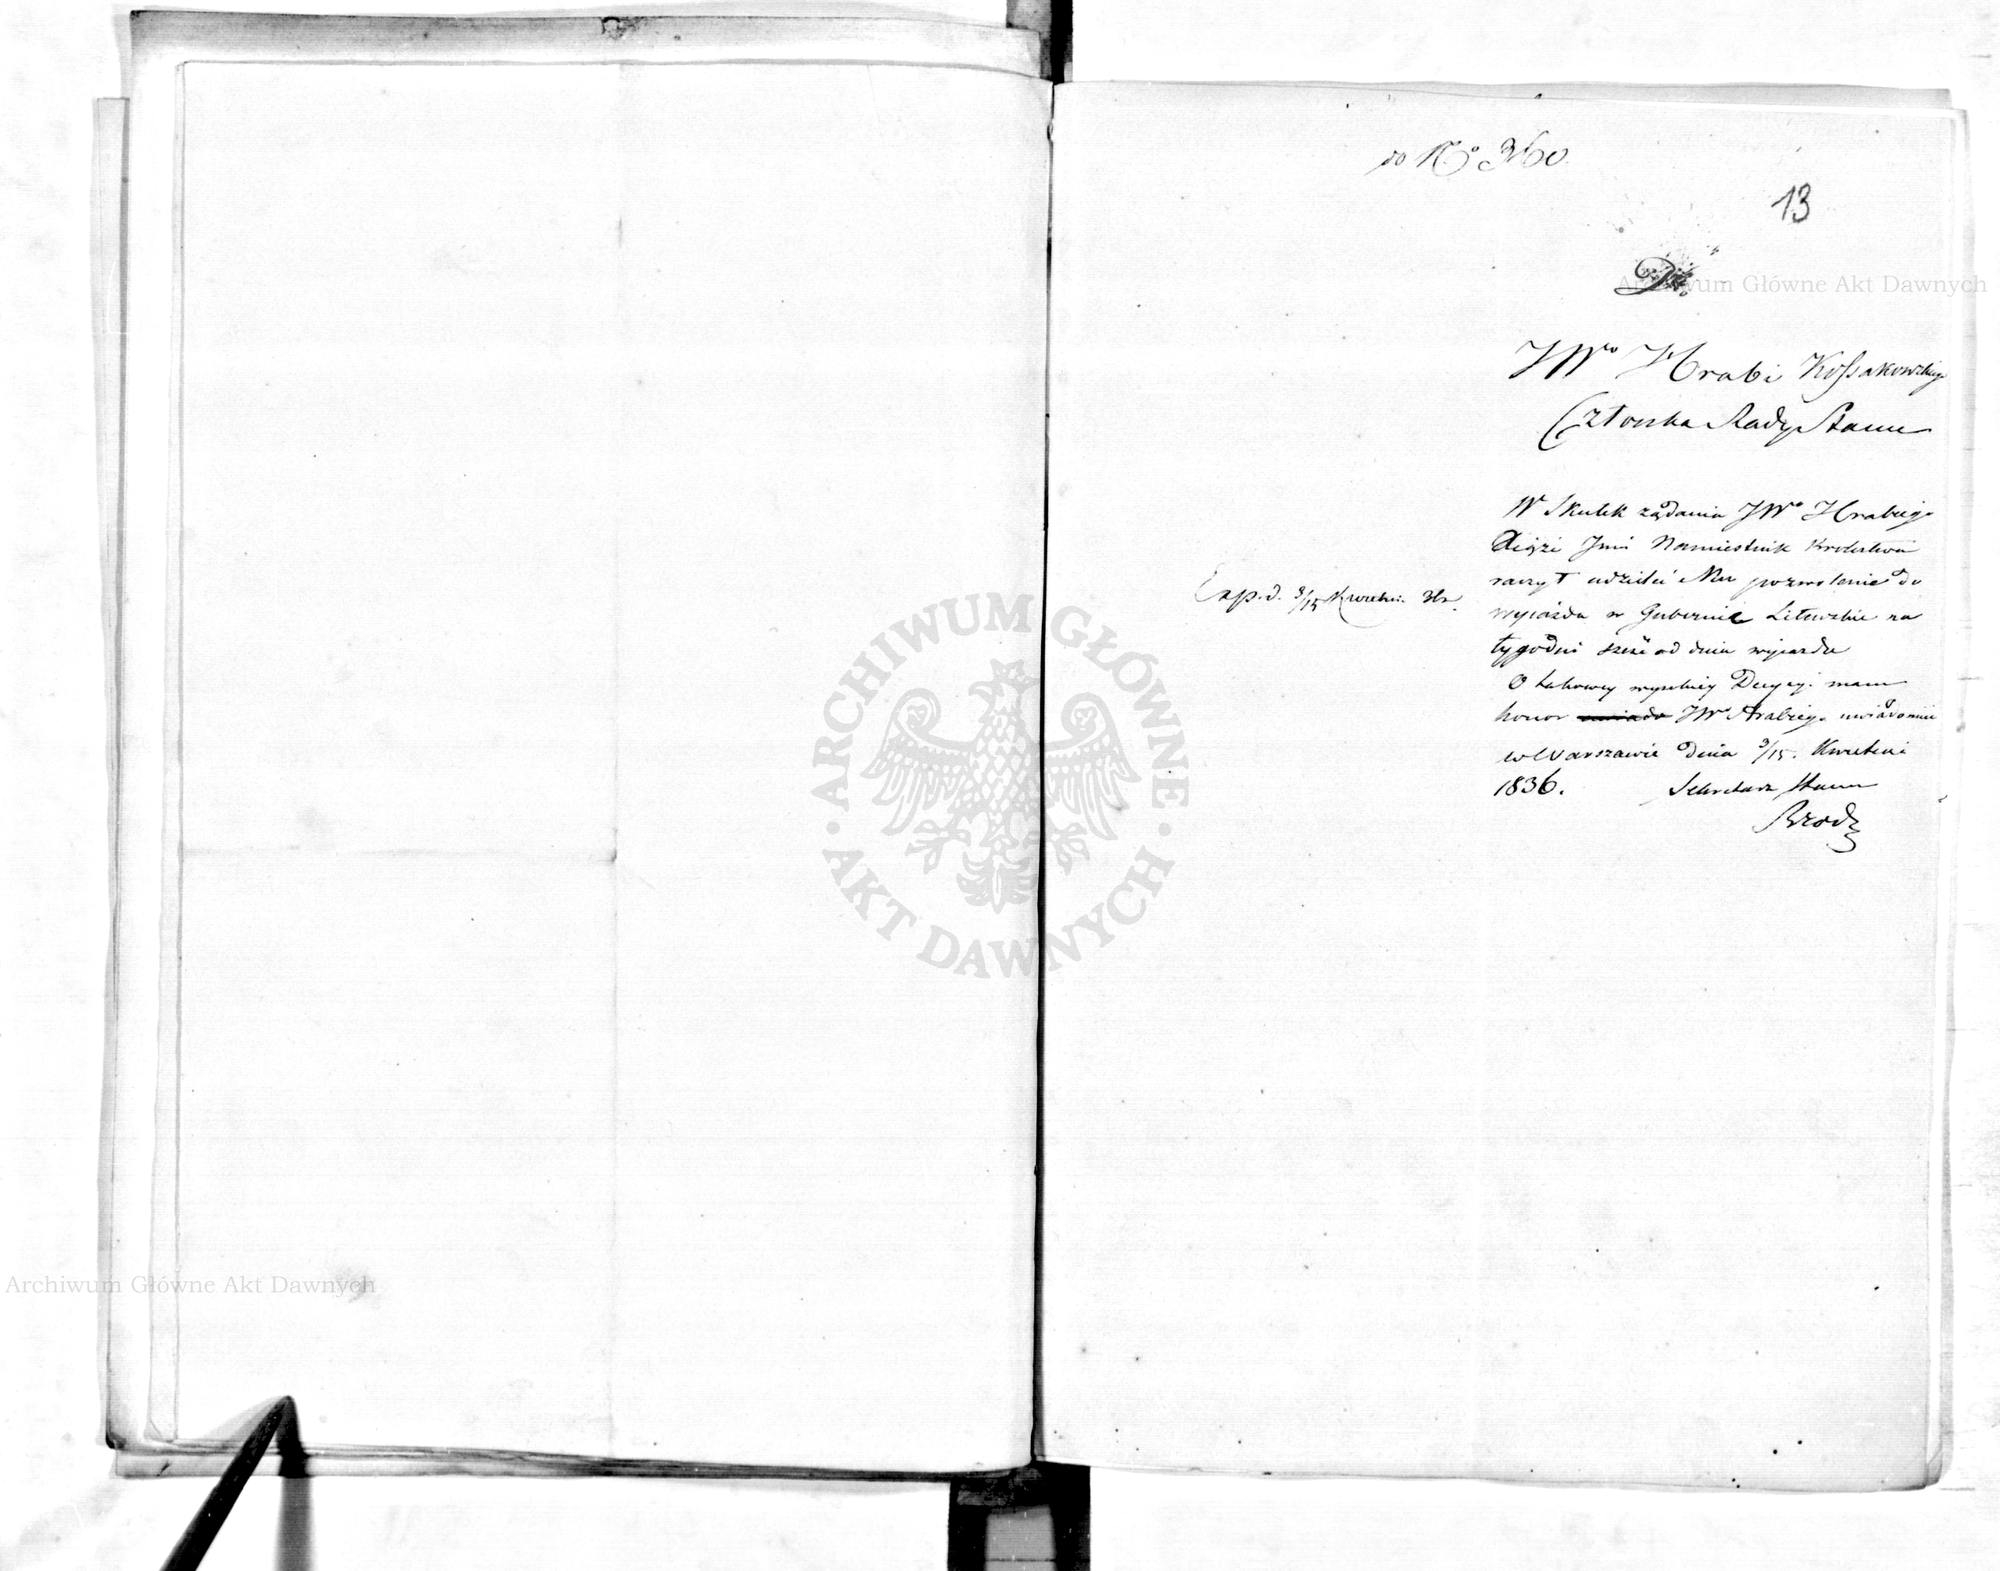 do No 360.
13
Do
JWo Hrabi Kossakowskiego
Członka Rady Stanu
W Skutek żądania JWo Hrabiego
Xiąże Jmć Namiestnik Królestwa
raczył udzielić Mu pozwolenie do
wyjazdu w Gubernie Litewskie na
tygodni sześć od dnia wyjazdu
O takowey wysokiey Decyzyi mam
honor JWo Hrabiego uwiadomić
w Warszawie dnia 3/15. Kwietnia
1836. Sekretarz Stanu
Exp. d. 3/15 Kwietnia 36 r.
ARCHIWUM GŁÓWNE
· AKT DAWNYCH ·
Archiwum Główne Akt Dawnych
Archiwum Główne Akt Dawnych